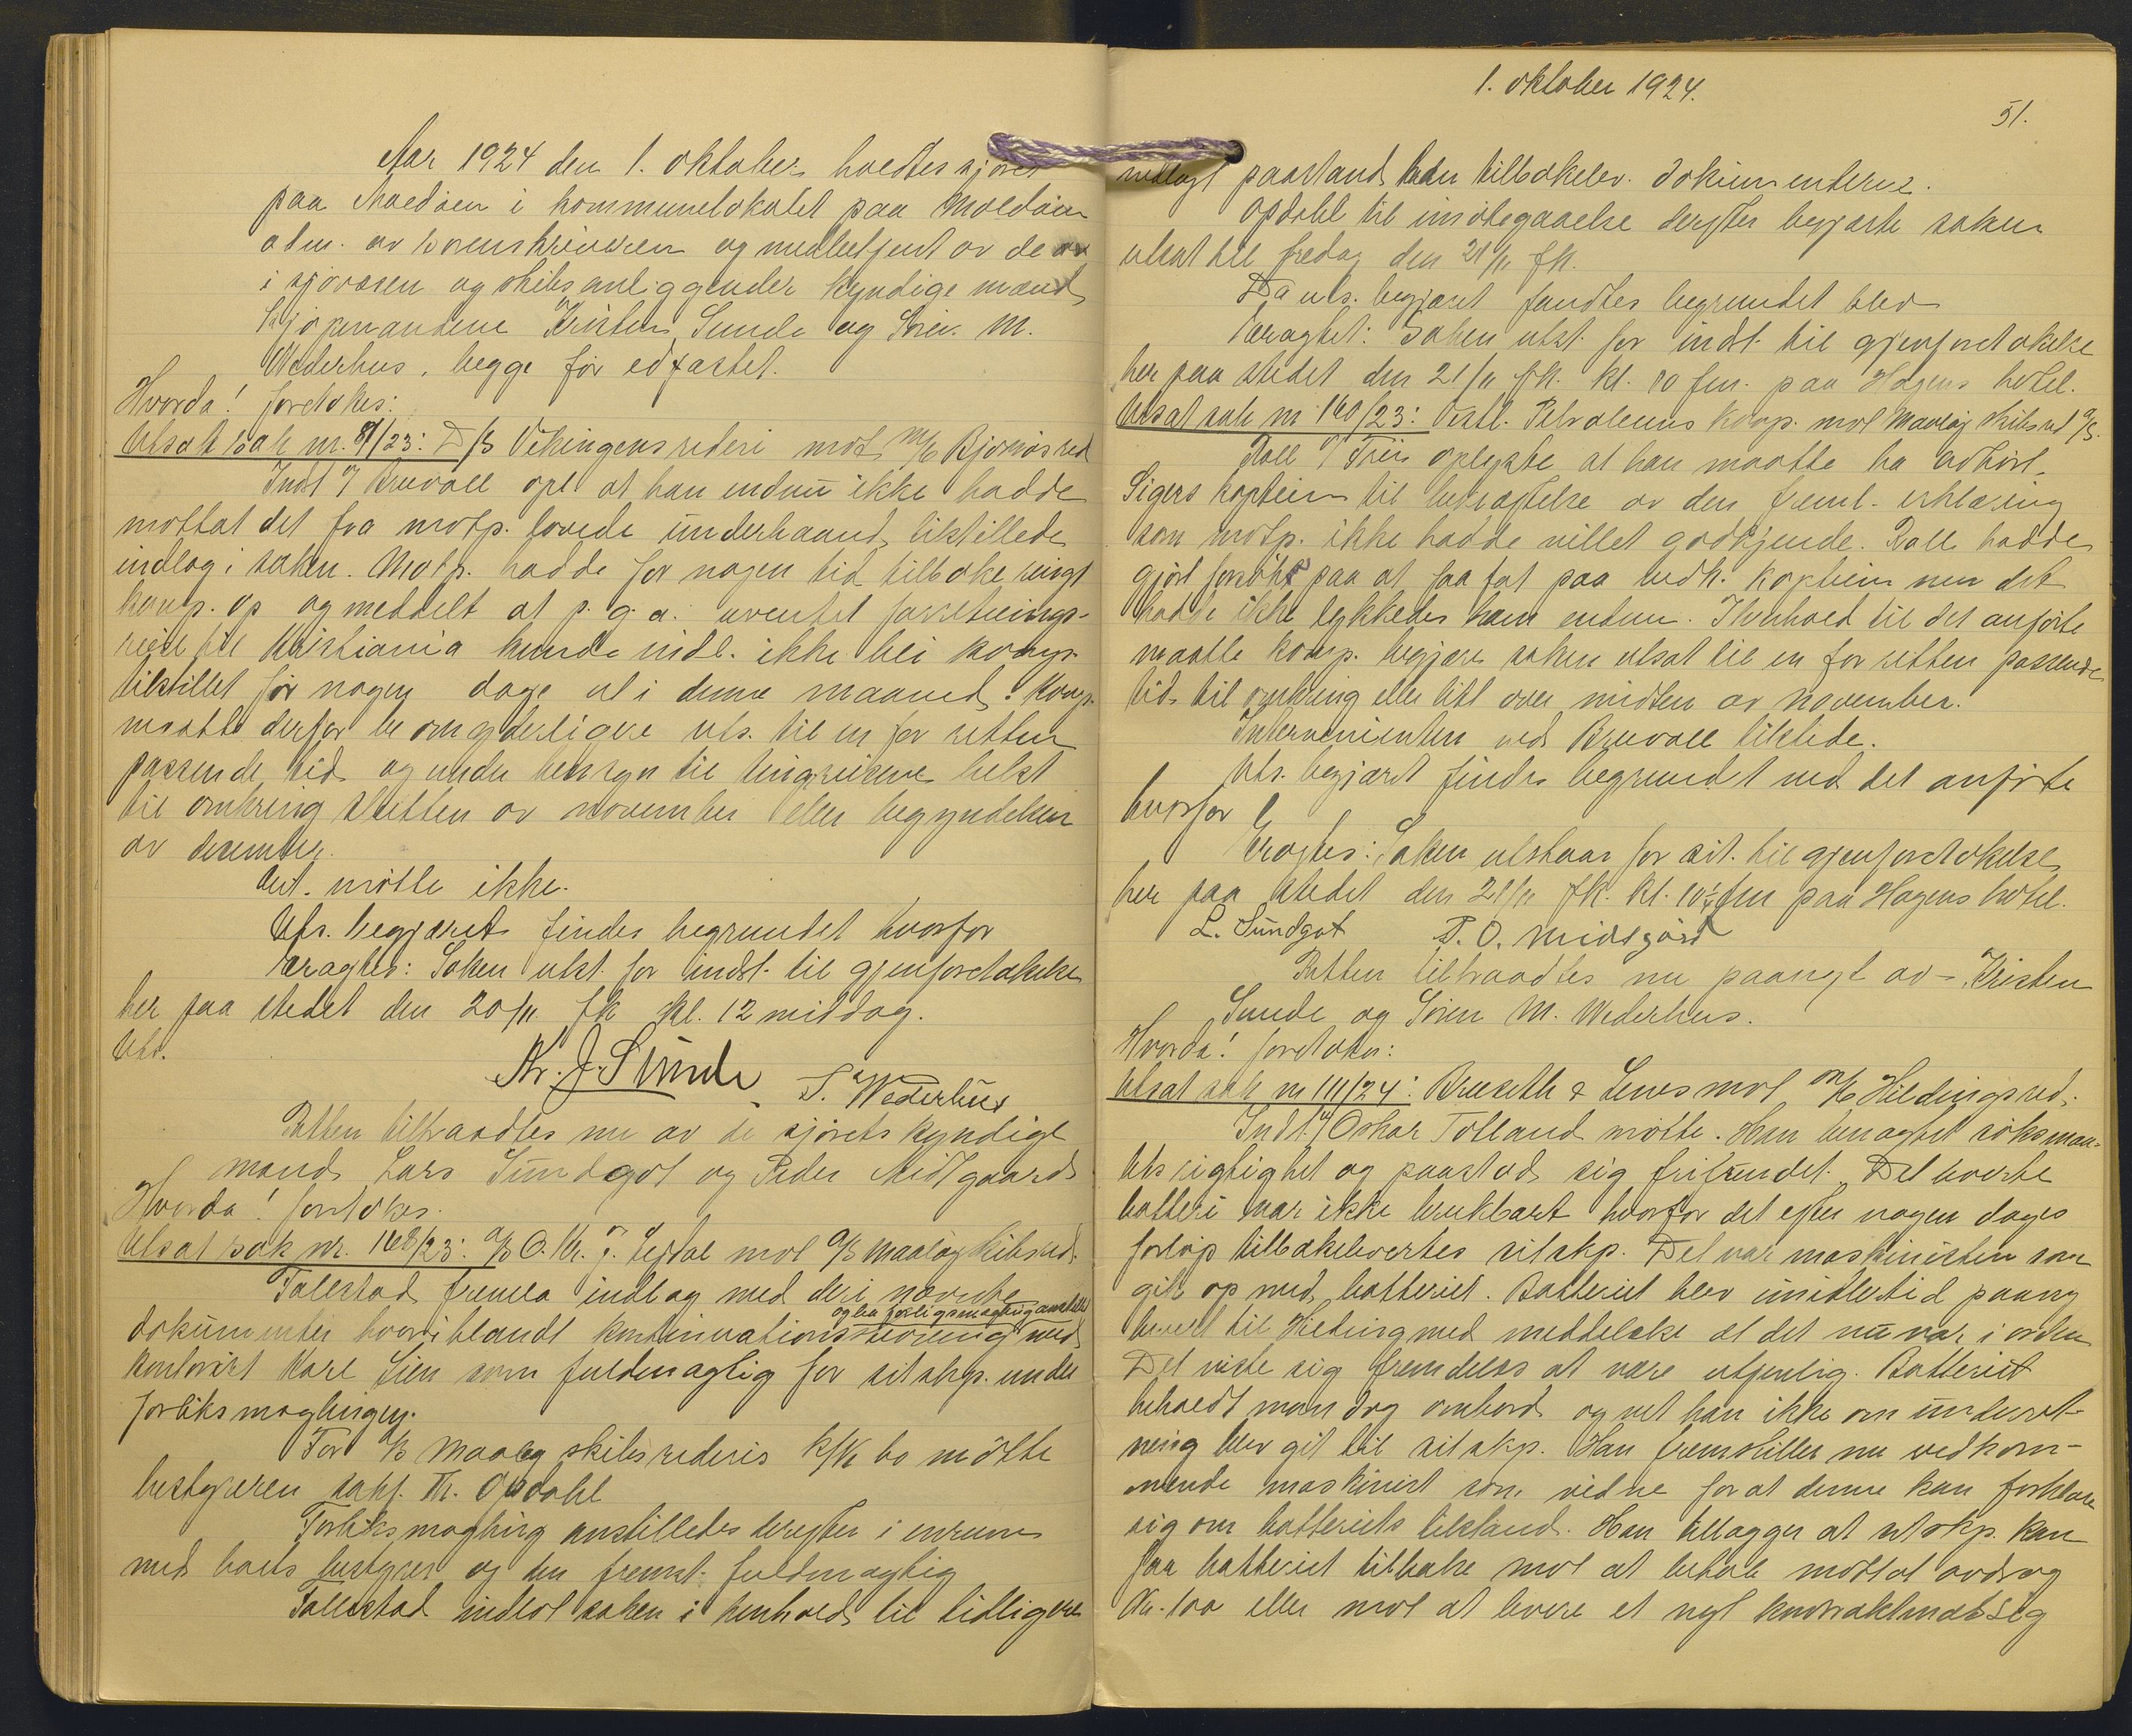 Aar 1924 den 1. oktober holdtes sjöret
paa Maldöen i kommunelokalet paa Moldöen
adm. av sorenskriveren og medbetjent av de
i sjövæsen og skibsanliggender kyndige mænd
kjöpmændene Kristen Sunde og Sören M.
Wederhus, begge för edfæstet.
Hvorda! foretokes:
Utsat sak nr. 81/23: D/S Vikingens rederi mot M/K Bjornös red
Indst v/ Bruvoll opl. at han endnu ikke hadde
mottat det fra motp. lovede underhaands tilstillede
indlæg i saken. Motp. hadde for nogen tid tilbake ringt
komp. op og meddelt at p.g.a. uventet forretnings-
reise til Kristiania kunde indl. ikke bli komp.
tilstillet för nogen dage ut i denne maaned. Komp.
maatte derfor be om yderligere uts. til en for retten
passende tid og under hensyn til tingreisene helst
til omkring slutten av november eller begyndelsen
av december.
Cit. mötte ikke.
Uts. begjæret findes begrundet hvorfor
eragtes: Saken utst. for indst. til gjenforetakelse
her paa stedet den 20/11 fk. kl. 12 middag.
Uts.
Kr. J. Sunde S. Wederhus
Retten tiltraadtes nu av de sjörets kyndige
mænd Lars Sundgot og Peder Midtgaard
Hvorda! foretokes.
Utsat sak nr. 168/23: A/S O. Kr. J. mot A/S Maalöy Skibsred.
Tallestad fremla indlæg med deri nævnte
og ba forligsmægling anstillet
dokumenter hvoriblandt kontinuationsstevning med
kontorist Karl Lien som fuldmægtig for citskp. under
forliksmæglingen.
For A/S Maalöy skibsrederis K/K bo mötte
bestyreren sakf. Th. Opdahl
Forliksmægling anstilledes derefter i enrum
med boets bestyrer og den fremst. fuldmægtig
Tallestad indlot saken i henhold til tidligere
1. oktober 1924.
51.
nedlagt paastand han tilbakelev. dokumenterne.
Opdahl til imötegaaelse derefter begjærte saken
utsat til fredag den 21/11 fk.
Da uts. begjæret fandtes begrundet blev
eragtet: Saken utst. for indst. til gjenforetakelse
her paa stedet den 21/11 fk. kl. 10 fm. paa Hagens hotel.
Utsat sak nr 160/23: Vestl. Petroleums Komp. mot Maalöy Skibsred A/S.
Roll v/ Friis oplyste at han maatte ha avhört
Sigers kaptein til bekræftelse av den freml. erklæring
som motp. ikke hadde villet godkjende. Roll hadde
gjört forsök paa at faa fat paa vedk. kaptein men det
hadde ikke lykkedes ham endnu. I henhold til det anförte
maatte komp. begjære saken utsat til en for retten passende
tid til omkring eller litt over midten av november.
Intervenienten ved Bruvoll tilstede.
Uts. begjæret findes begrundet ved det anförte
hvorfor
Eragtes: Saken utstaar for cit. til gjenforetakelse
her paa stedet den 21/11 fk. kl. 10½ fm paa Hagens hotel.
L. Sundgot P. O. Midtgård
Retten tiltraadtes nu paanyt av - Kristen
Sunde og Sören M. Wederhus.
Hvorda! foretokes:
Utsat sak nr 111/24: Bruseth & Lenes mot M/K Hildings red.
Indst v/ Oskar Tolland mötte. Han benægtet söksmaa-
lets rigtighet og paastod sig frifundet. Det leverte
batteri var ikke brukbart hvorfor det efter nogen dages
forlöp tilbakelevertes citskp. Det var maskinisten som
gik op med batteriet. Batteriet blev imidlertid paany
levert til Hilding med meddelelse at det nu var i orden
Det viste sig fremdeles at være utjenlig. Batteriet
beholdt man dog ombord og vet han ikke om underret-
ning blev git til citskp. Han fremstiller nu vedkom-
mende maskinist som vidne for at denne kan forklare
sig om batteriets tilstand. Han tillægger at citskp. kan
faa batteriet tilbake mot at betale mottat avdrag
Kr. 100 eller mot at levere et nyt kontraktmæssig